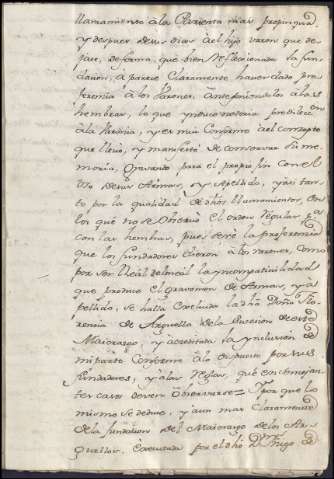 llamamiento à la Parienta mas propinqua,
y despues de sus dias àel hijo varon que de-
jare, de forma, que bien reflexionada la fun-
dacion, aparece claramente haver dado pre-
ferencia à los Varones, anteponiendolos à las
hembras, lo que
à la Varonia, y es mui conforme àel concepto
que llevò, y manifestò de conservar su me-
moria, Quanto para el proprio fin con el
de sus Armas, y Apellido, y asi tan-
to por la qualidad de dhos llamamientos, con
los que no se observa el orden regular
con las hembras, pues dexò la preferencia
que los fundadores dieron à los varones, como
por ser la yncompatibilidad
que produce el gravamen de Armas, y A-
pellido, se halla excluida la dha Doña Flo-
rencia de Arguello de la subcesion de este
Maiorazgo, y acreditada la ynclusion de
mi parte conforme à lo dispuesto por sus
fundadores, y à las Reglas, que en semejan-
tes casos deven observarse = Y por que lo
mismo se deduce, y aun mas claramente
de la fundacion del Maiorazgo de los Ar-
guellos, executada por el dho Dn Diego de